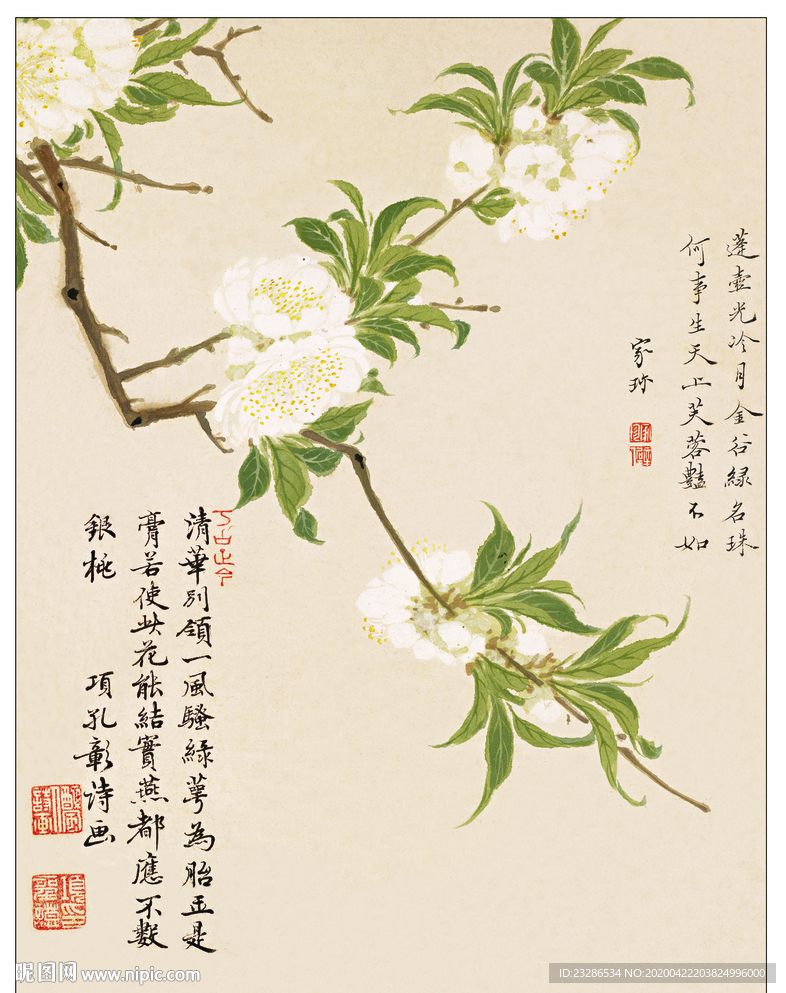 蓬壺光冷月金谷綠名珠
何事生天上芙蓉豔不如
家珎
清華別領一風騷綠萼為胎玉是
膏若使此花能結實燕都應不數
銀桃 項孔彰詩画
昵图网 www.nipic.com
ID:23286534 NO:20200422203824996000